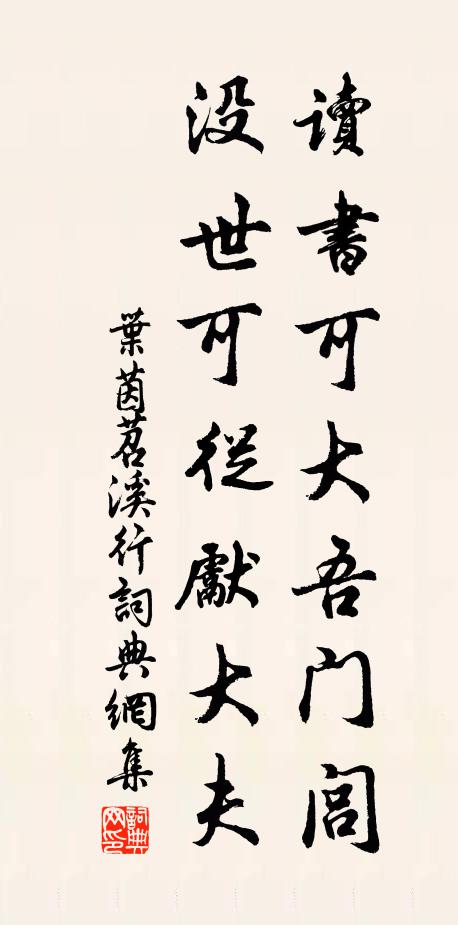 讀書可大吾门閭
没世可從獻大夫
葉茵苕溪行詞典網集
詞典网印